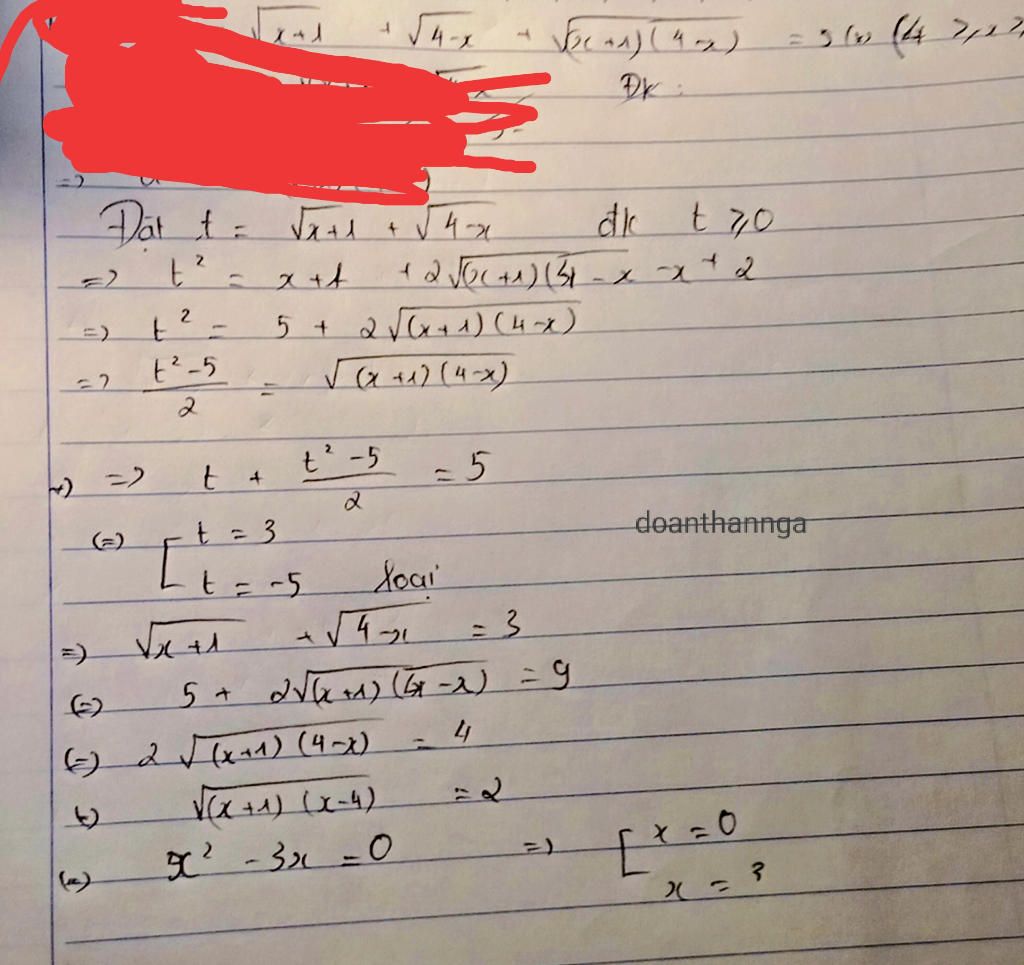 √x+1 + √4-x + √(x+1)(4-x) = 5 (*) (4 ≥ x ≥
Đk :
=>
Đặt t = √x+1 + √4-x đk t ≥ 0
=> t² = x+1 + 2√(x+1)(4-x -x +
=> t² = 5 + 2√(x+1)(4-x)
=> t²-5/2 = √(x+1)(4-x)
*) => t + t²-5/2 = 5
(=) [ t = 3
t = -5 loại
doanthannga
=) √x+1 + √4-x = 3
(=) 5 + 2√(x+1)(4-x) = 9
(=) 2√(x+1)(4-x) = 4
√(x+1)(x-4) = 2
(=) x² - 3x = 0 =) [ x = 0
x = 3